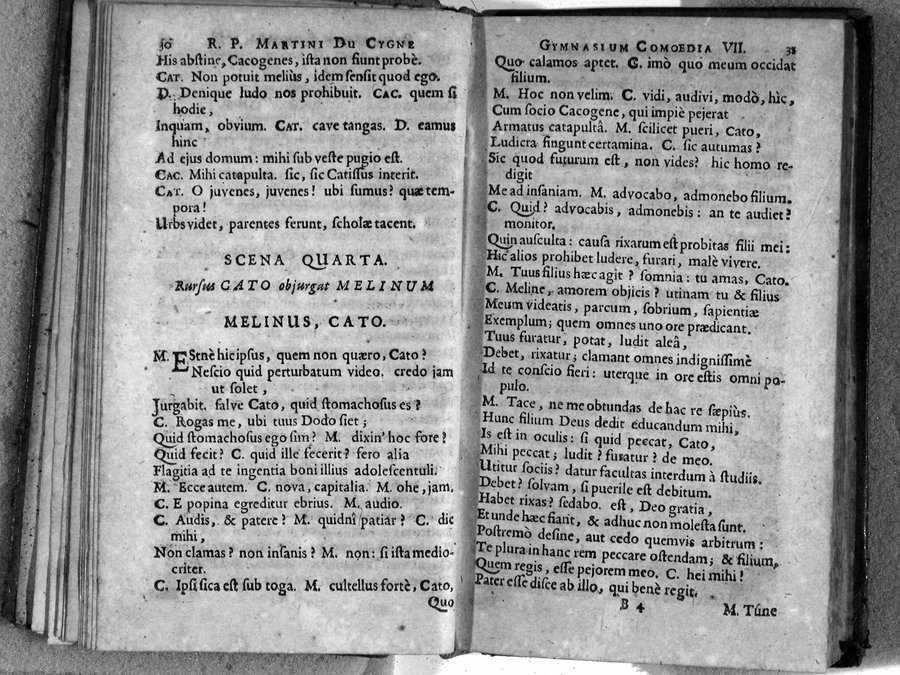 30 R. P. MARTINI DU CYGNE
His abſtine, Cacogenes, iſta non fiunt probè.
CAT. Non potuit meliùs, idem ſenſit quod ego.
D. Denique ludo nos prohibuit. CAC. quem ſi
hodie,
Inquam, obvium. CAT. cave tangas. D. eamus
hinc
Ad ejus domum: mihi ſub veſte pugio eſt.
CAC. Mihi catapulta. ſic, ſic Catiſſus interit.
CAT. O juvenes, juvenes! ubi ſumus? quæ tem-
pora!
Urbs videt, parentes ferunt, ſcholæ tacent.
SCENA QUARTA.
Rurſus CATO objurgat MELINUM
MELINUS, CATO.
M. EStnè hic ipſus, quem non quæro, Cato?
Neſcio quid perturbatum video. credo jam
ut ſolet,
Jurgabit. ſalve Cato, quid ſtomachoſus es?
C. Rogas me, ubi tuus Dodo ſiet;
Quid ſtomachoſus ego ſim? M. dixin' hoc fore?
Quid fecit? C. quid ille fecerit? fero alia
Flagitia ad te ingentia boni illius adoleſcentuli.
M. Ecce autem. C. nova, capitalia. M. ohe, jam.
C. E popina egreditur ebrius. M. audio.
C. Audis, & patere? M. quidnî patiar? C. dic
mihi,
Non clamas? non inſanis? M. non: ſi iſta medio-
criter.
C. Ipſi ſica eſt ſub toga. M. cultellus fortè, Cato,
Quo
GYMNASIUM COMOEDIA VII. 31
Quo calamos aptet. C. imò quo meum occidat
filium.
M. Hoc non velim. C. vidi, audivi, modò, hìc,
Cum ſocio Cacogene, qui impiè pejerat
Armatus catapultâ. M. ſcilicet pueri, Cato,
Ludicra fingunt certamina. C. ſic autumas?
Sic quod futurum eſt, non vides? hic homo re-
digit
Me ad inſaniam. M. advocabo, admonebo filium.
C. Quid? advocabis, admonebis: an te audiet?
monitor.
Quin auſculta: cauſa rixarum eſt probitas filii mei:
Hic alios prohibet ludere, furari, malè vivere.
M. Tuus filius hæc agit? ſomnia: tu amas, Cato.
C. Meline, amorem objicis? utinam tu & filius
Meum videatis, parcum, ſobrium, ſapientiæ
Exemplum; quem omnes uno ore prædicant.
Tuus furatur, potat, ludit aleâ,
Debet, rixatur; clamant omnes indigniſſimè
Id te conſcio fieri: uterque in ore eſtis omni po-
pulo.
M. Tace, ne me obtundas de hac re ſæpiùs.
Hunc filium Deus dedit educandum mihi,
Is eſt in oculis: ſi quid peccat, Cato,
Mihi peccat; ludit? furatur? de meo.
Utitur ſociis? datur facultas interdum à ſtudiis.
Debet? ſolvam, ſi puerile eſt debitum.
Habet rixas? ſedabo. eſt, Deo gratia,
Et unde hæc fiant, & adhuc non moleſta ſunt.
Poſtremò deſine, aut cedo quemvis arbitrum:
Te plura in hanc rem peccare oſtendam; & filium,
Quem regis, eſſe pejorem meo. C. hei mihi!
Pater eſſe diſce ab illo, qui benè regit.
B 4 M. Túne